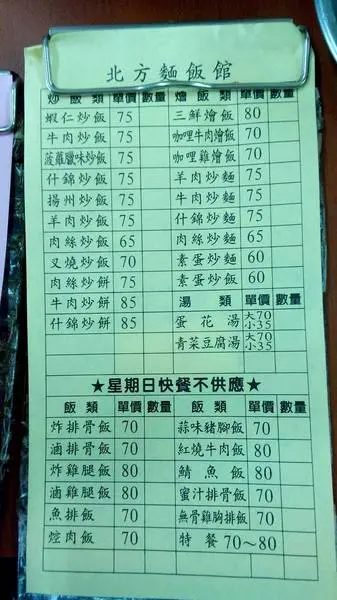 北方麵飯館
炒飯類 單價 數量 燴飯類 單價 數量
蝦仁炒飯 75 三鮮燴飯 80
牛肉炒飯 75 咖哩牛肉燴飯 70
菠蘿臘味炒飯 75 咖哩雞燴飯 70
什錦炒飯 75 羊肉炒麵 75
揚州炒飯 75 牛肉炒麵 75
羊肉炒飯 75 什錦炒麵 75
肉絲炒飯 65 肉絲炒麵 65
叉燒炒飯 70 素蛋炒麵 60
肉絲炒餅 75 素蛋炒飯 60
牛肉炒餅 85 湯類 單價 數量
什錦炒餅 85 蛋花湯 大70 小35
青菜豆腐湯 大70 小35
★星期日快餐不供應★
飯類 單價 數量 飯類 單價 數量
炸排骨飯 70 蒜味豬腳飯 70
滷排骨飯 70 紅燒牛肉飯 80
炸雞腿飯 80 鯖魚飯 80
滷雞腿飯 80 蜜汁排骨飯 70
魚排飯 70 無骨雞胸排飯 70
焢肉飯 70 特餐 70～80